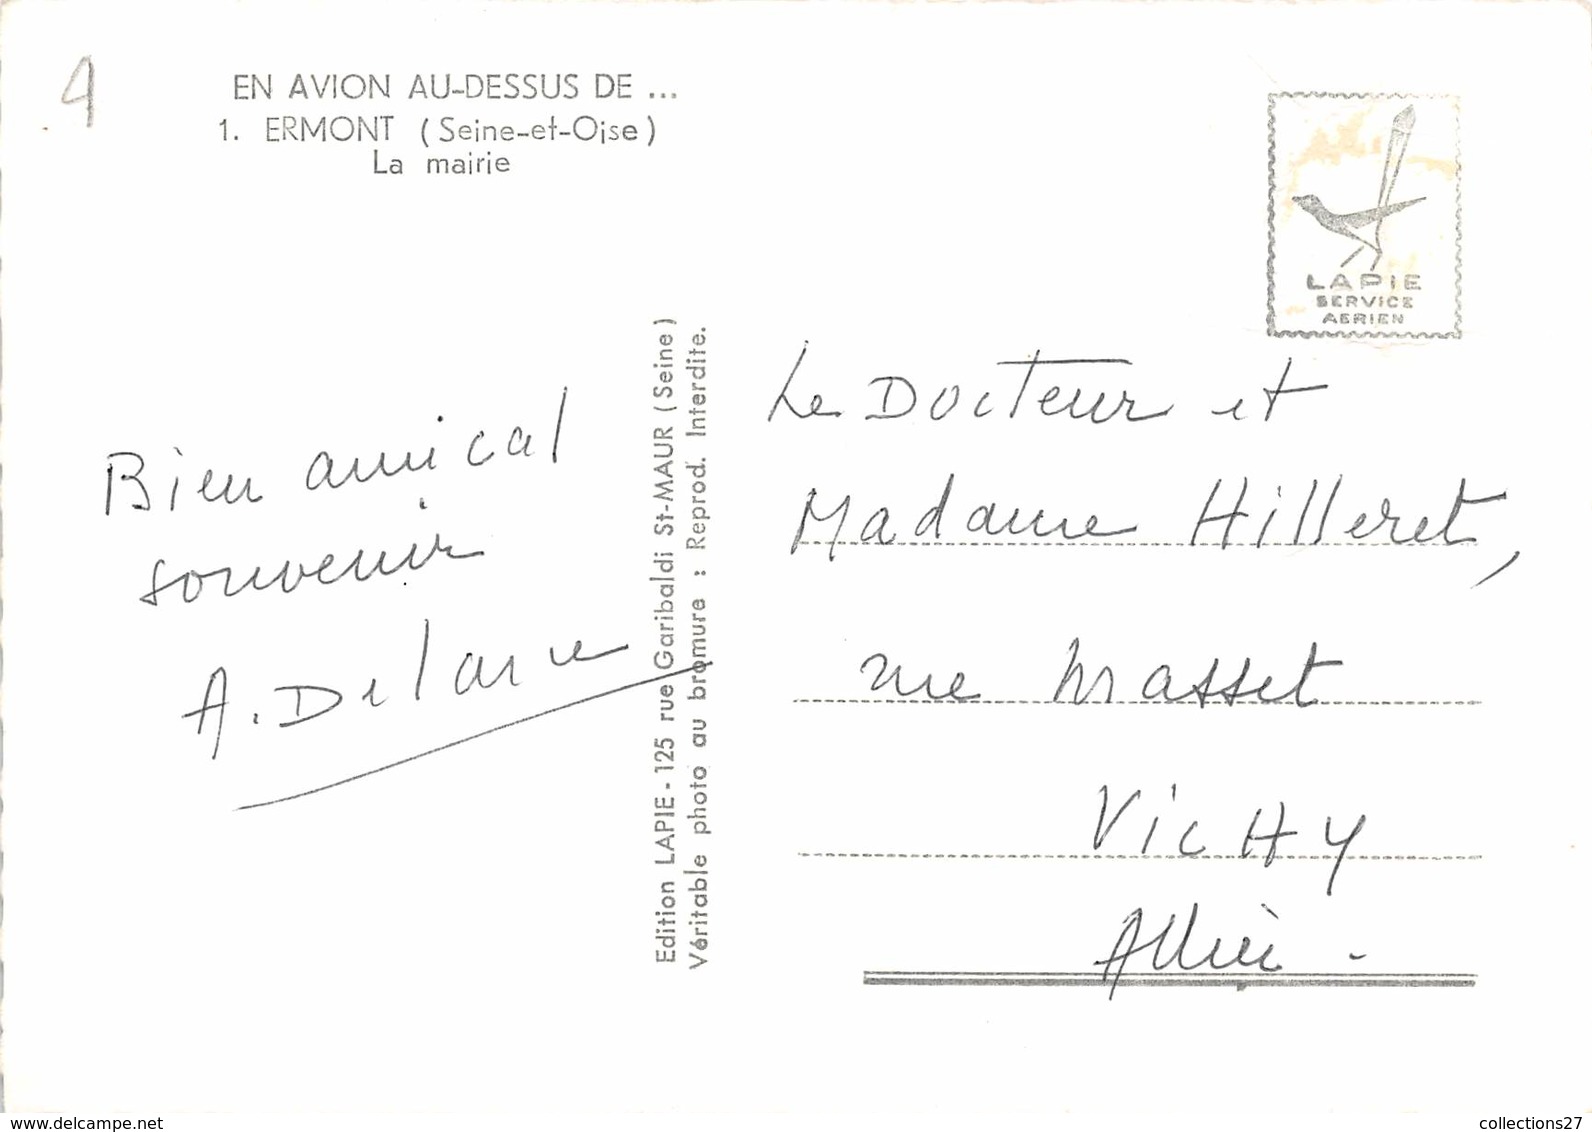 4
EN AVION AU-DESSUS DE ...
1. ERMONT (Seine-et-Oise)
La mairie
LAPIE
SERVICE
AERIEN
Bien amical
souvenir
A. Delarue
Edition LAPIE - 125 rue Garibaldi St-MAUR (Seine)
Véritable photo au bromure : Reprod. Interdite.
Le Docteur et
Madame Hilleret,
rue Masset
VicHY
Allier.
www.delcampe.net
collections27